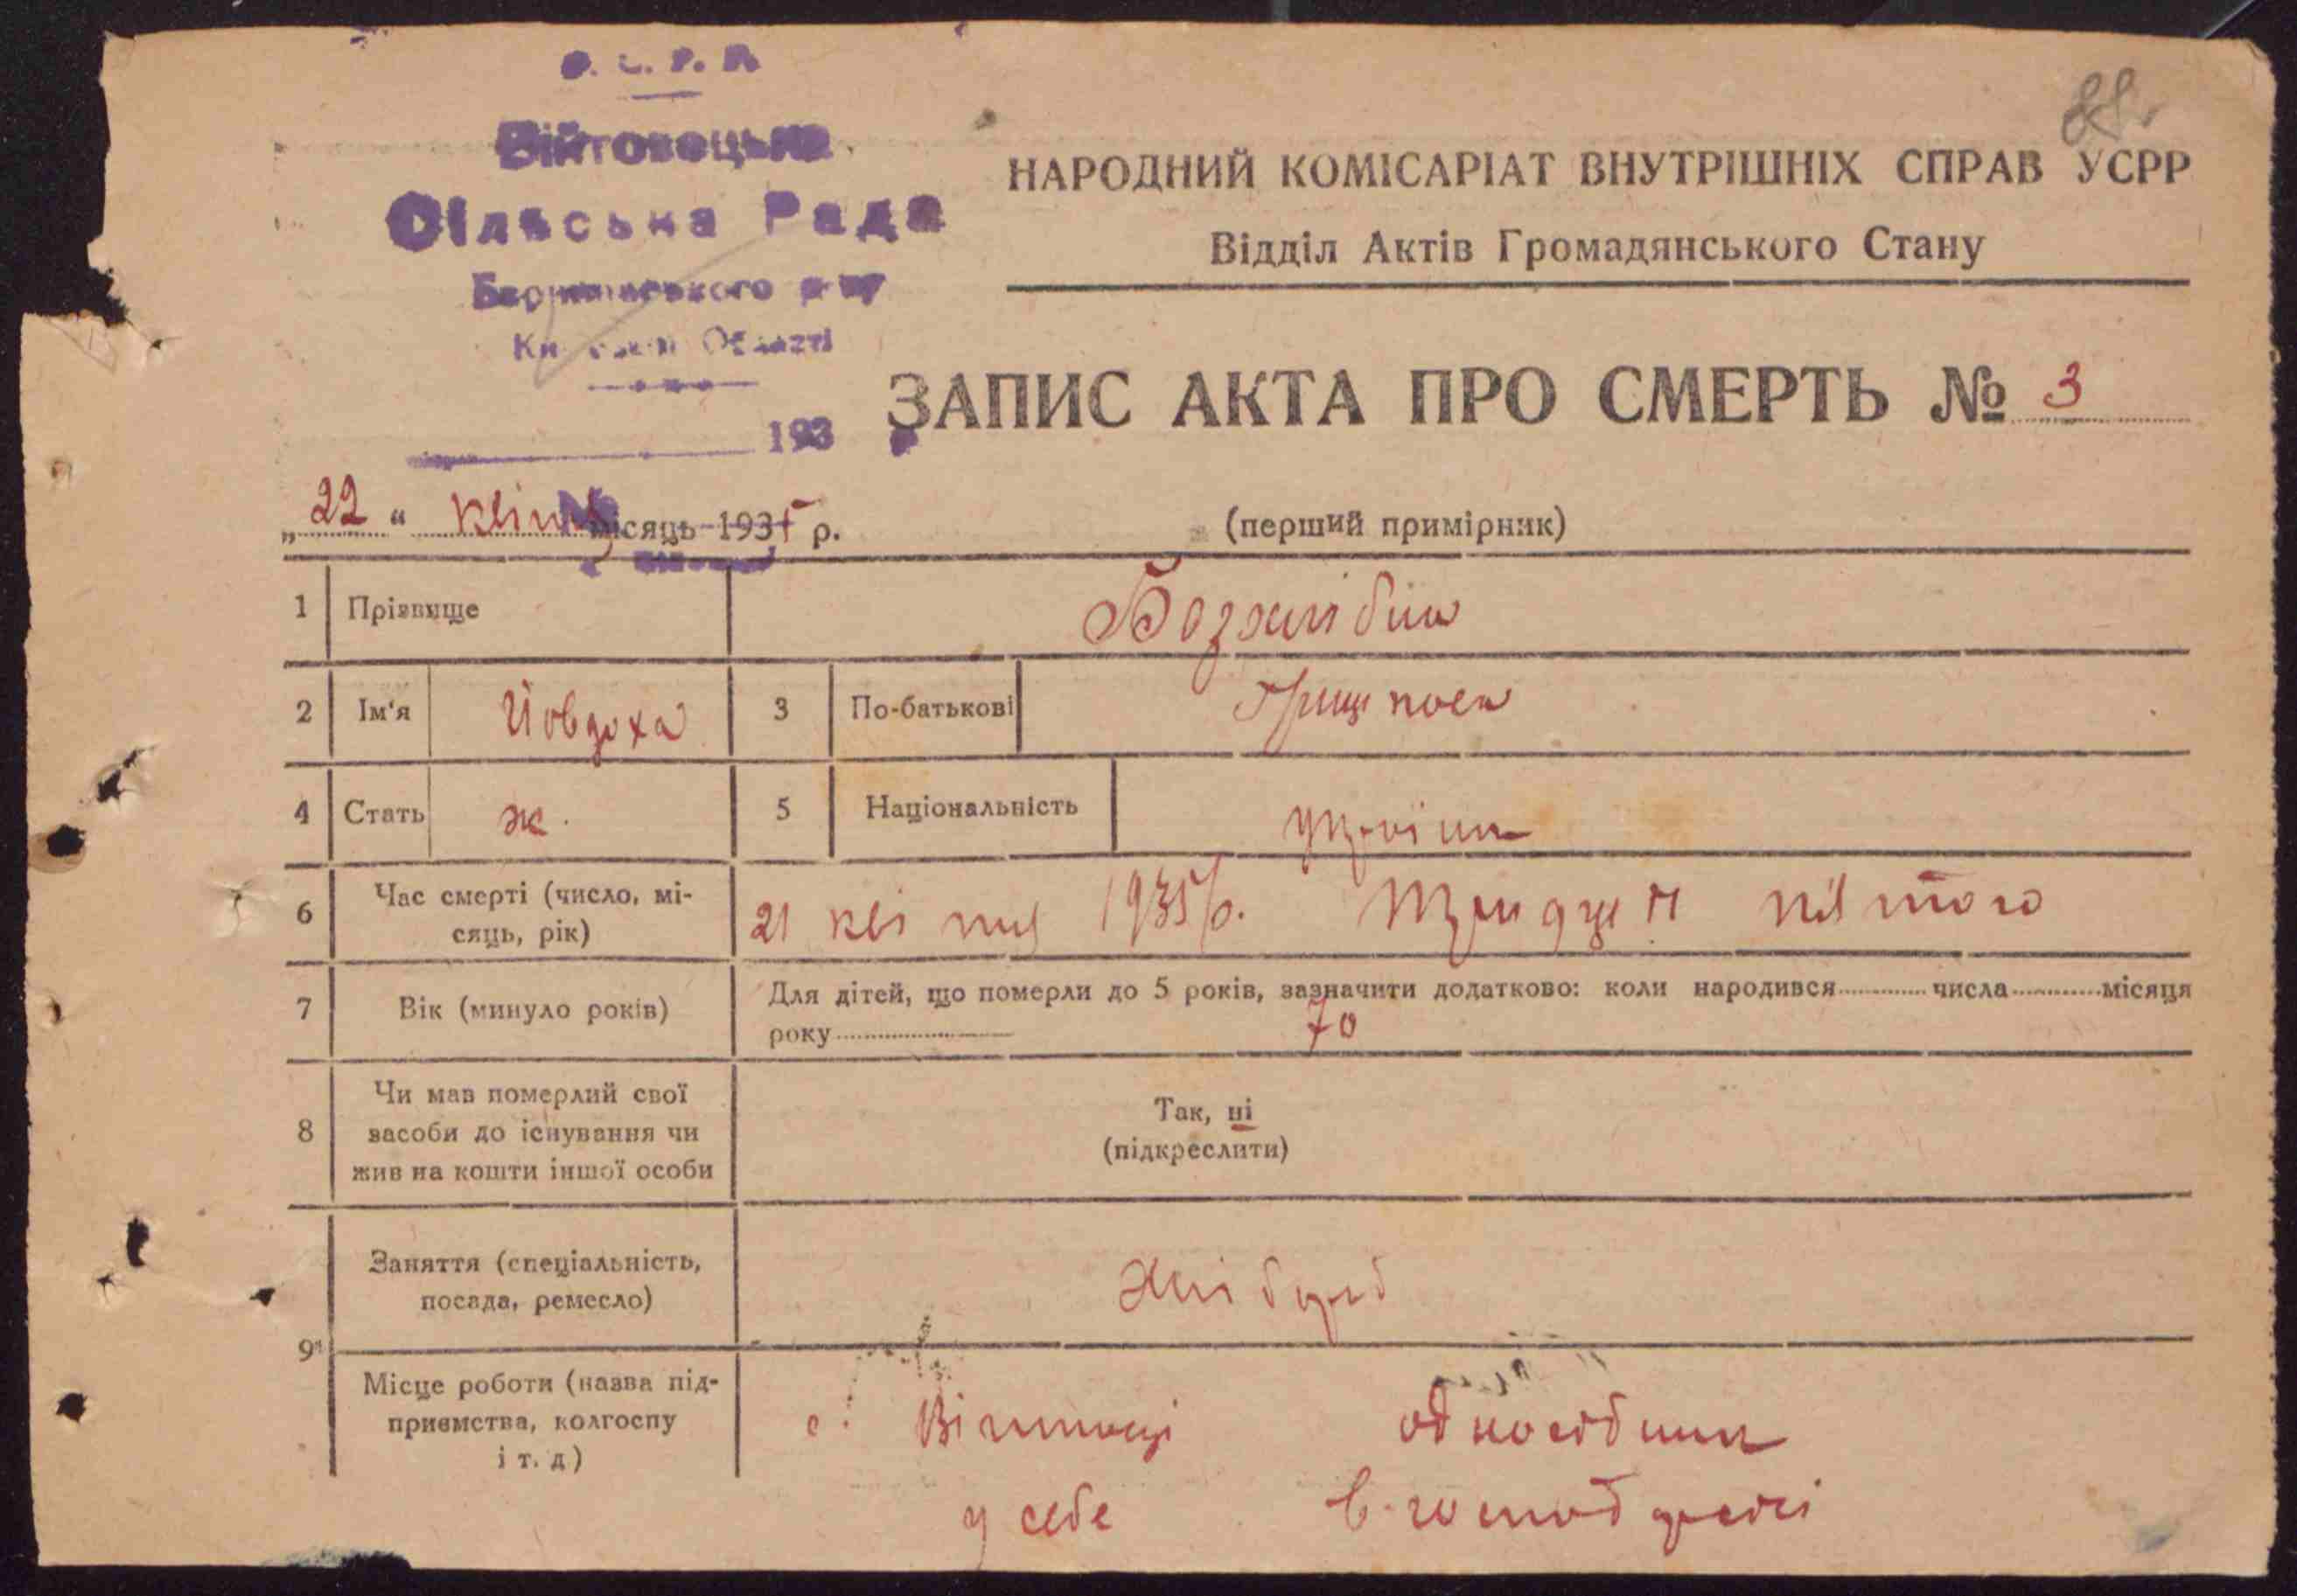 Війтовецька
Сільська Рада
Київської Області
193 р
88
НАРОДНИЙ КОМІСАРІАТ ВНУТРІШНІХ СПРАВ УСРР
Відділ Актів Громадянського Стану
ЗАПИС АКТА ПРО СМЕРТЬ № 3
„22“ квітня місяць 1935 р.
(перший примірник)
1 Прізвище
2 Ім'я Йовдоха 3 По-батькові
4 Стать ж. 5 Національність україн
6 Час смерті (число, мі-
сяць, рік) 21 квітня 1935 р. тридцять п'ятого
7 Вік (минуло років) Для дітей, що померли до 5 років, зазначити додатково: коли народився числа місяця
року 70
8 Чи мав померлий свої
засоби до існування чи
жив на кошти іншої особи
Так, ні
(підкреслити)
9 Заняття (спеціальність,
посада, ремесло) хлібороб
Місце роботи (назва під-
приємства, колгоспу
і т. д) с. Війтовці одноосібник
у себе в господарстві